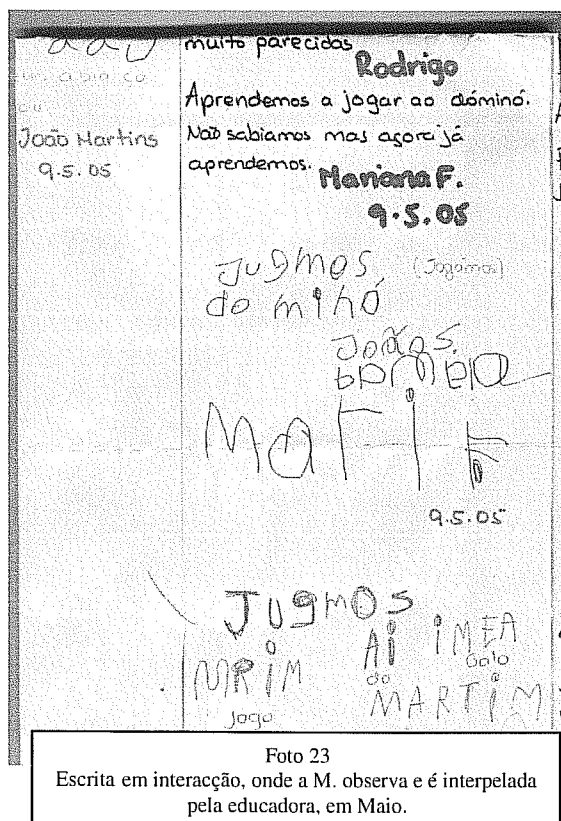 João Martins
9.5.05
muito parecidas
Rodrigo
Aprendemos a jogar ao dóminó.
Não sabiamos mas agora já
aprendemos.
Mariana F.
9.5.05
Jugmos (Jogámos)
do minó
João S.
9.5.05
Jugmos
MRiM Ai iMEA
Jogo do Galo
MARTiM
Foto 23
Escrita em interacção, onde a M. observa e é interpelada
pela educadora, em Maio.